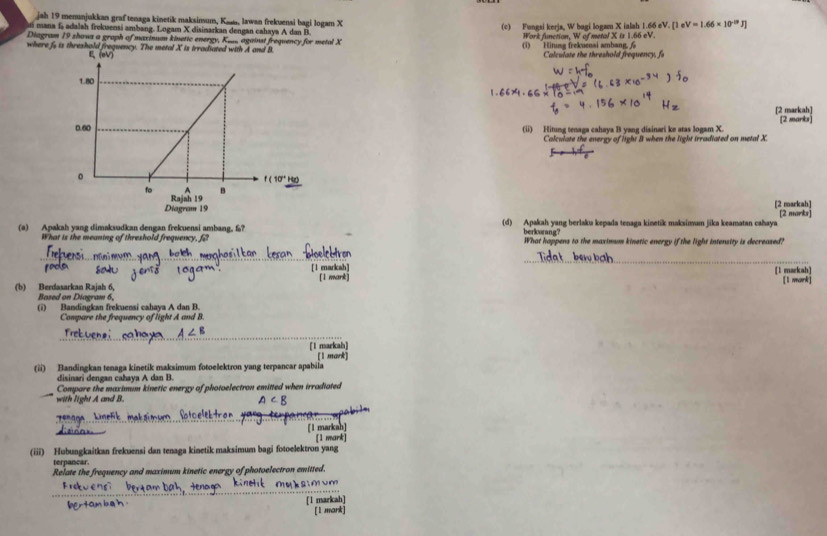 jah 19 menunjukkan graf tenaga kinetik maksimum, Kmaks, lawan frekuensi bagi logam X
di mana f₀ adalah frekuensi ambang. Logam X disinarkan dengan cahaya A dan B.
Diagram 19 shows a graph of maximum kinetic energy, Kmax, against frequency for metal X
where f₀ is threshold frequency. The metal X is irradiated with A and B.
E, (eV)
1.80
0.60
0
fo A B
f ( 10¹⁴ Hz)
Rajah 19
Diagram 19
(a) Apakah yang dimaksudkan dengan frekuensi ambang, f₀?
What is the meaning of threshold frequency, f₀?
Frekuensi minimum yang boleh menghasilkan kesan fotoelektron
pada satu jenis logam.
[1 markah]
[1 mark]
(b) Berdasarkan Rajah 6,
Based on Diagram 6,
(i) Bandingkan frekuensi cahaya A dan B.
Compare the frequency of light A and B.
Frekuensi cahaya A < B
[1 markah]
[1 mark]
(ii) Bandingkan tenaga kinetik maksimum fotoelektron yang terpancar apabila
disinari dengan cahaya A dan B.
Compare the maximum kinetic energy of photoelectron emitted when irradiated
with light A and B.
A < B
Tenaga kinetik maksimum fotoelektron yang terpancar apabila
disinari
[1 markah]
[1 mark]
(iii) Hubungkaitkan frekuensi dan tenaga kinetik maksimum bagi fotoelektron yang
terpancar.
Relate the frequency and maximum kinetic energy of photoelectron emitted.
Frekuensi bertambah, tenaga kinetik maksimum
bertambah.
[1 markah]
[1 mark]
(c) Fungsi kerja, W bagi logam X ialah 1.66 eV. [1 eV = 1.66 × 10⁻¹⁹ J]
Work function, W of metal X is 1.66 eV.
(i) Hitung frekuensi ambang, f₀
Calculate the threshold frequency, f₀
W = hf₀
1.66×1.66 × 10⁻¹⁹ = (6.63 × 10⁻³⁴) f₀
f₀ = 4.156 × 10¹⁴ Hz
[2 markah]
[2 marks]
(ii) Hitung tenaga cahaya B yang disinari ke atas logam X.
Calculate the energy of light B when the light irradiated on metal X.
[2 markah]
[2 marks]
(d) Apakah yang berlaku kepada tenaga kinetik maksimum jika keamatan cahaya
berkurang?
What happens to the maximum kinetic energy if the light intensity is decreased?
Tidak berubah
[1 markah]
[1 mark]